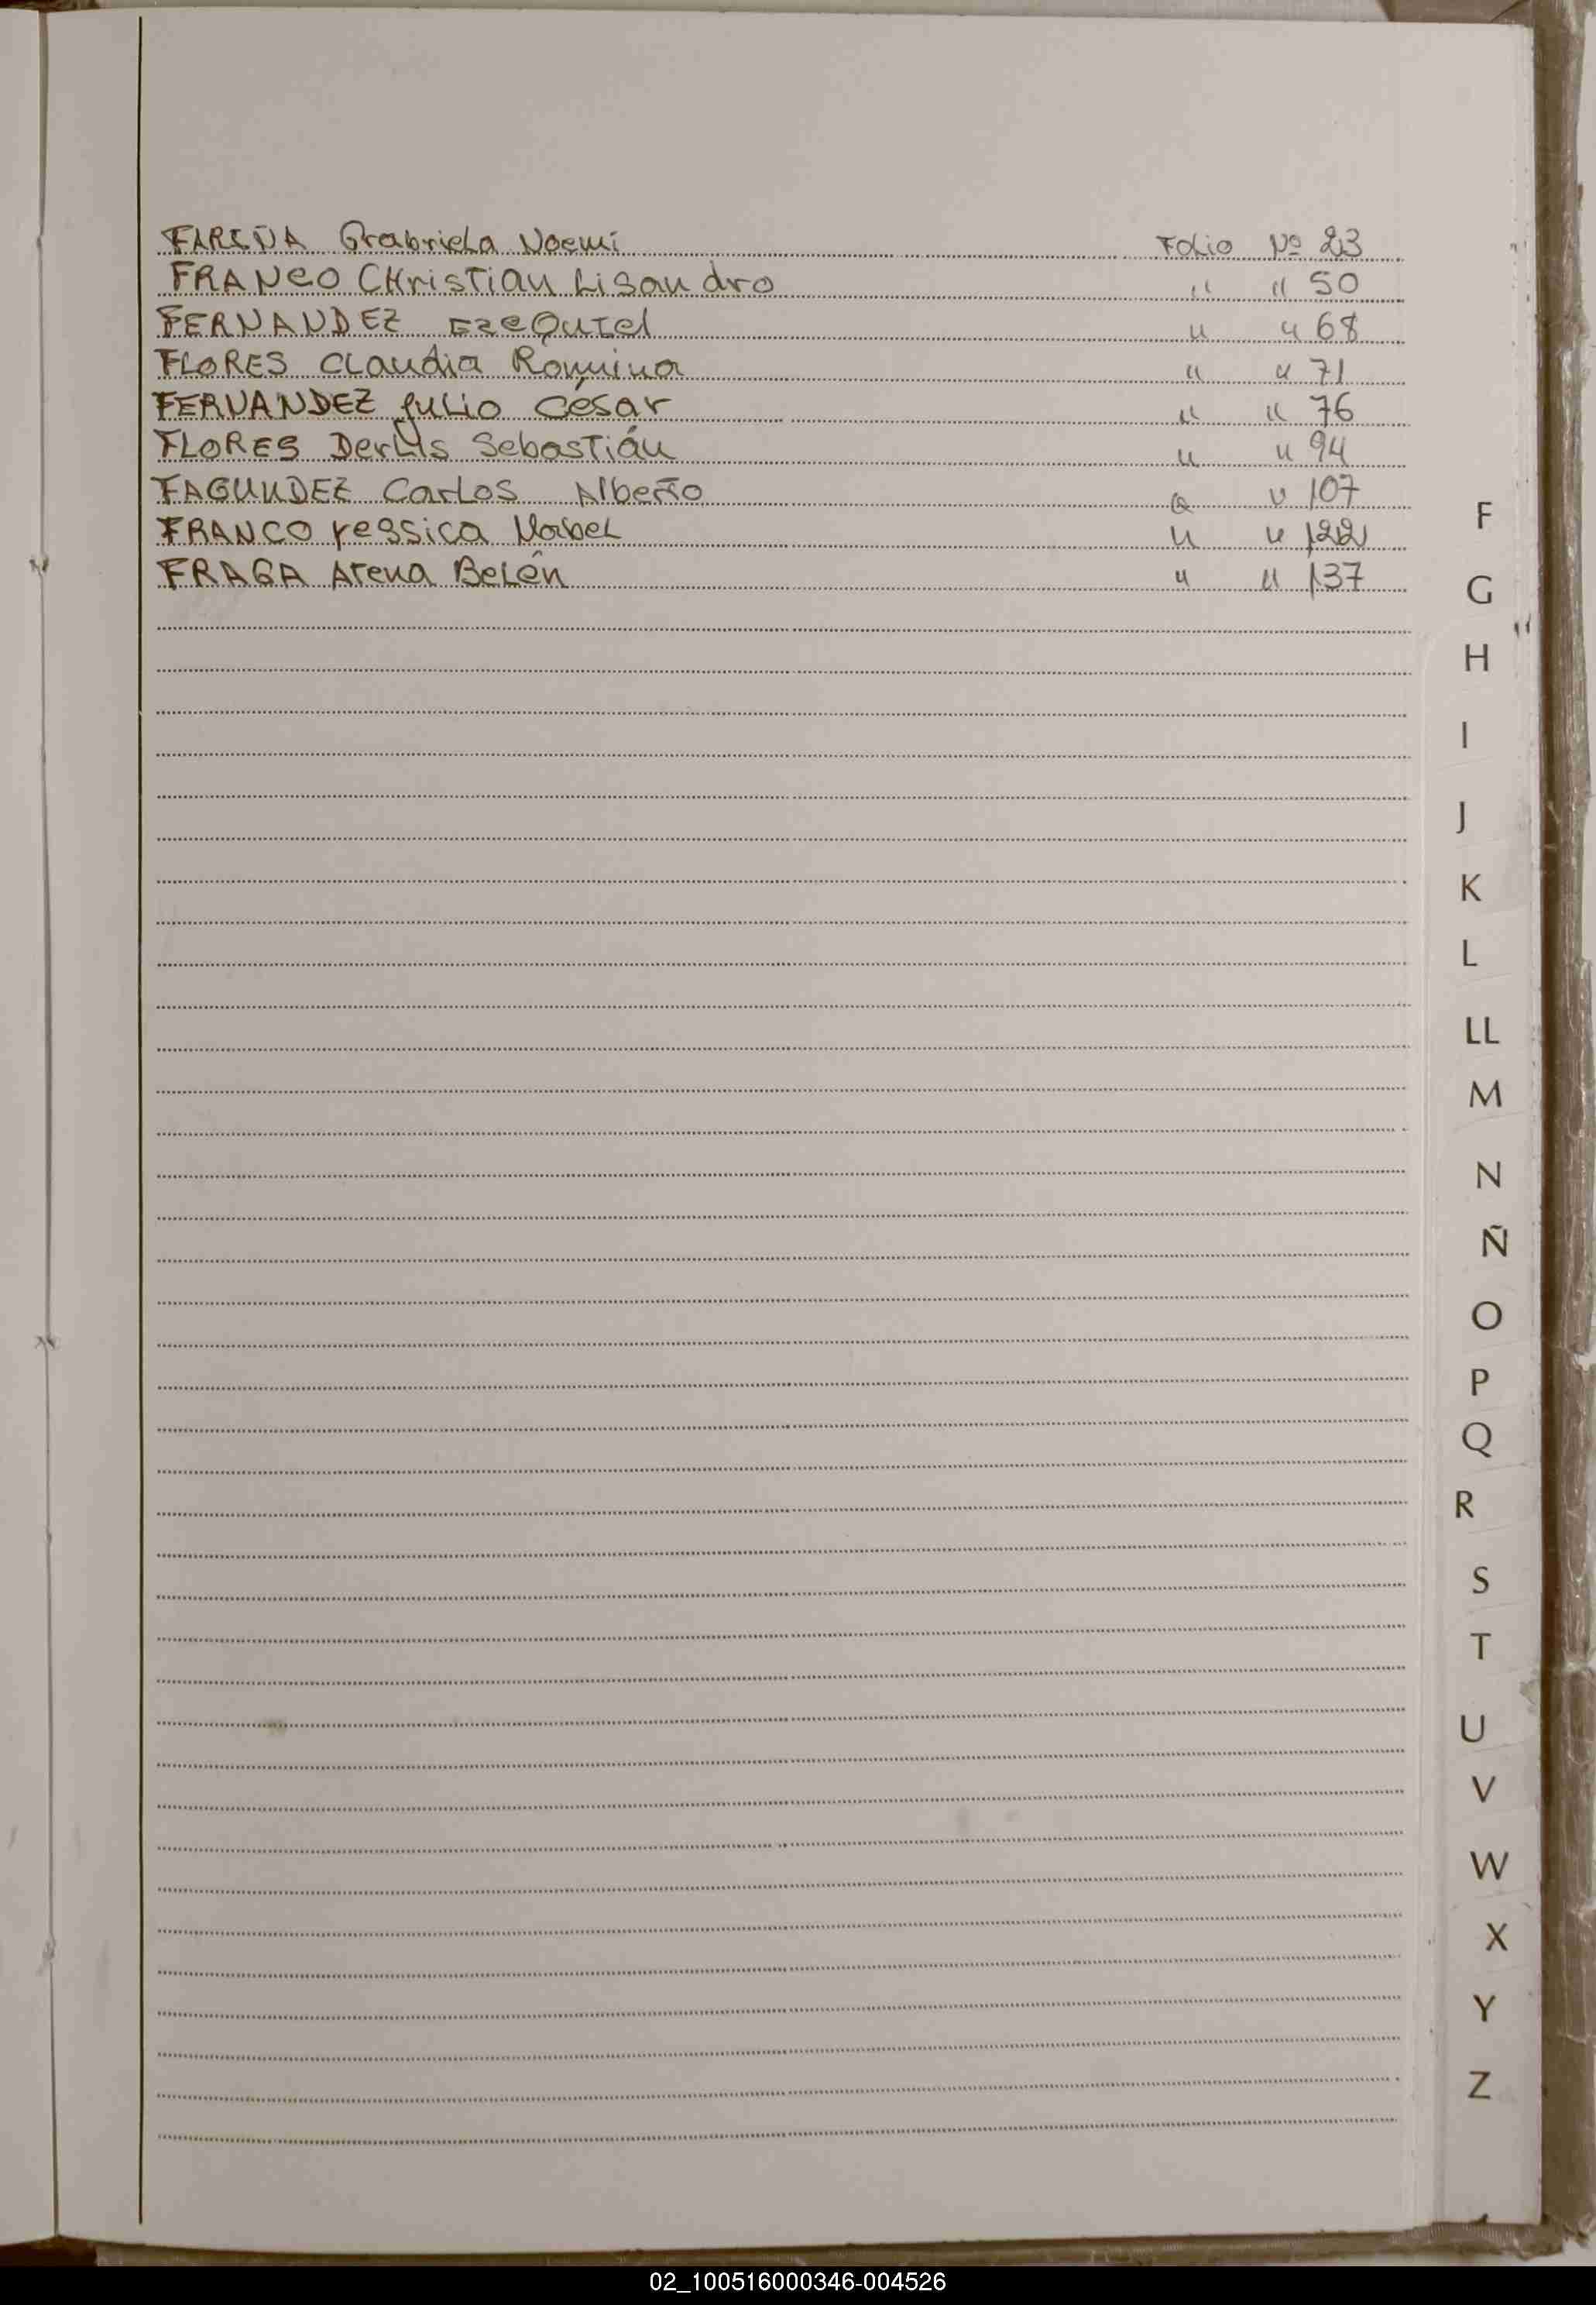 FARIÑA Grabriela Noemí Folio Nº 23
FRANCO CHristian Lisandro " " 50
FERNANDEZ EzeQuiel " " 68
FLORES Claudia Romina " " 71
FERNANDEZ Julio César " " 76
FLORES Derlis Sebastián " " 94
FAGUNDEZ Carlos Alberto " " 107
FRANCO Yessica Mabel " " 122
FRAGA Arena Belén " " 137
F
G
H
I
J
K
L
LL
M
N
Ñ
O
P
Q
R
S
T
U
V
W
X
Y
Z
02_100516000346-004526